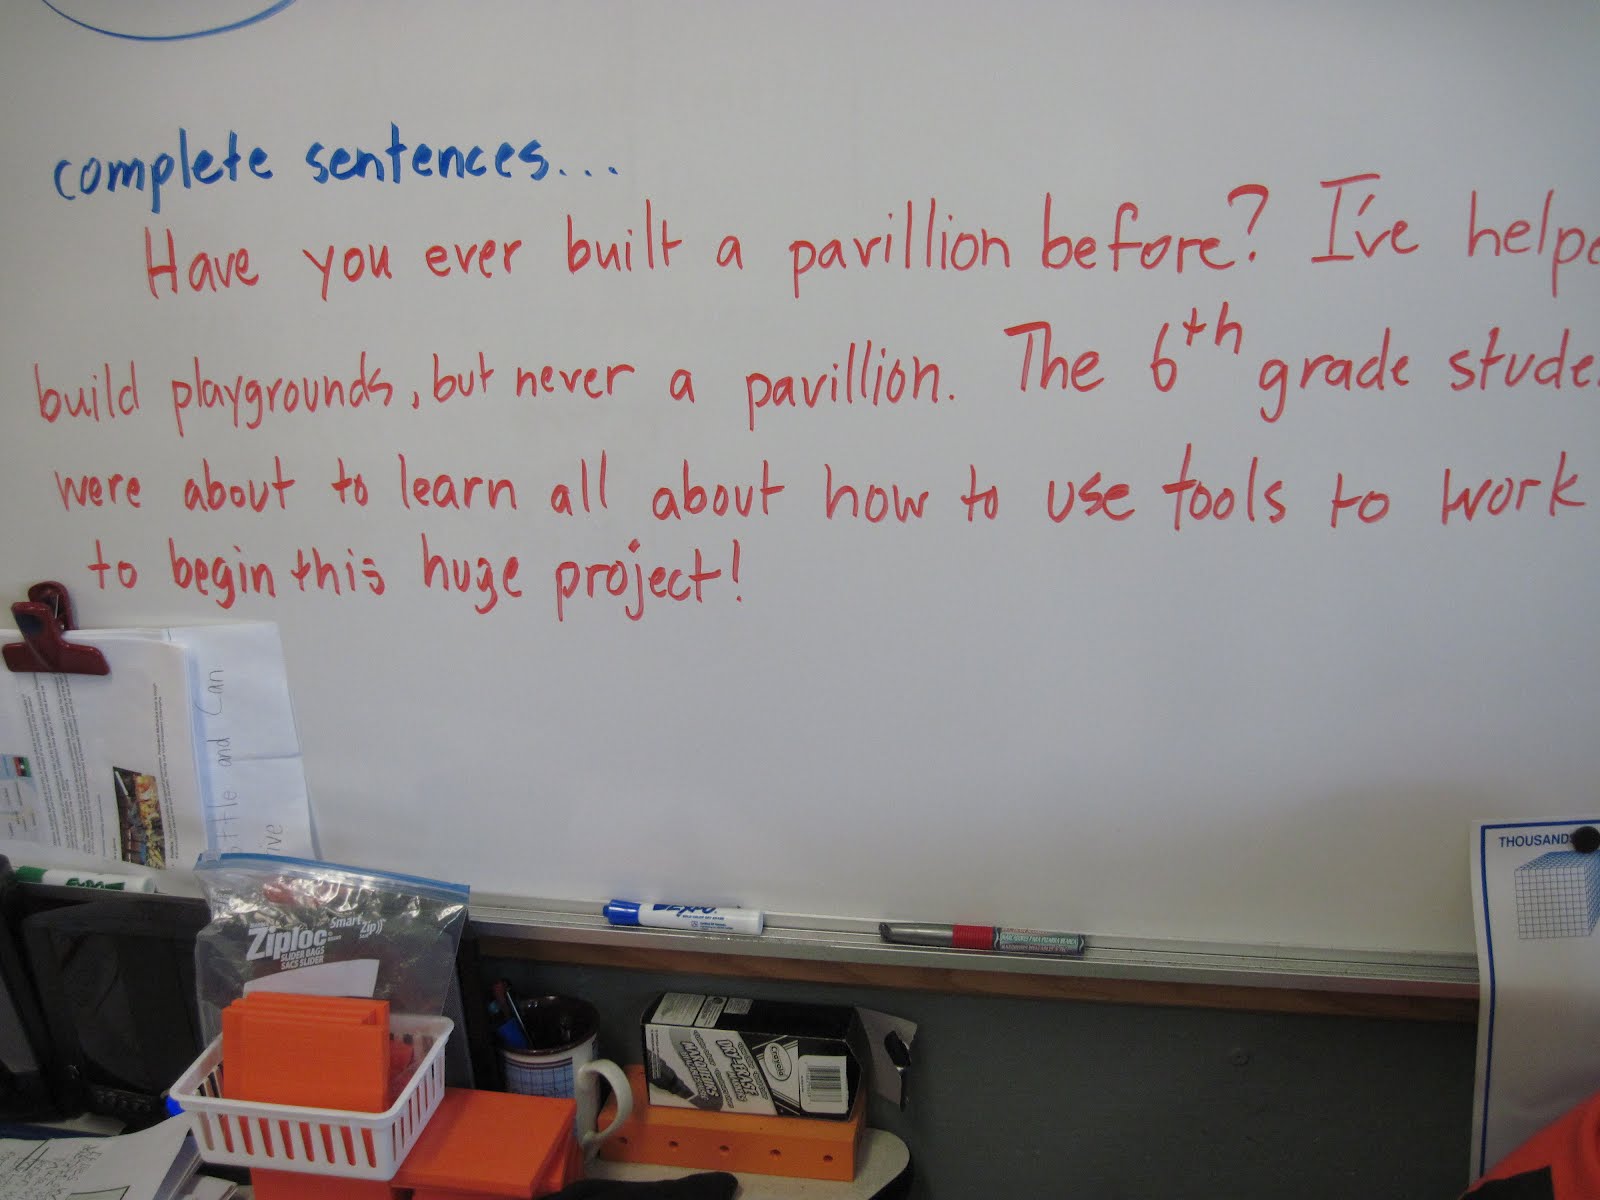 complete sentences...
Have you ever built a pavillion before? I've helpe
build playgrounds, but never a pavillion. The 6th grade stude
were about to learn all about how to use tools to work
to begin this huge project!
ttle and Can
ive
THOUSANDS
EXPO
EXPO
Ziploc
Smart Zip
SLIDER BAGS
SACS SLIDER
Crayola
DRY-ERASE
MARKERS